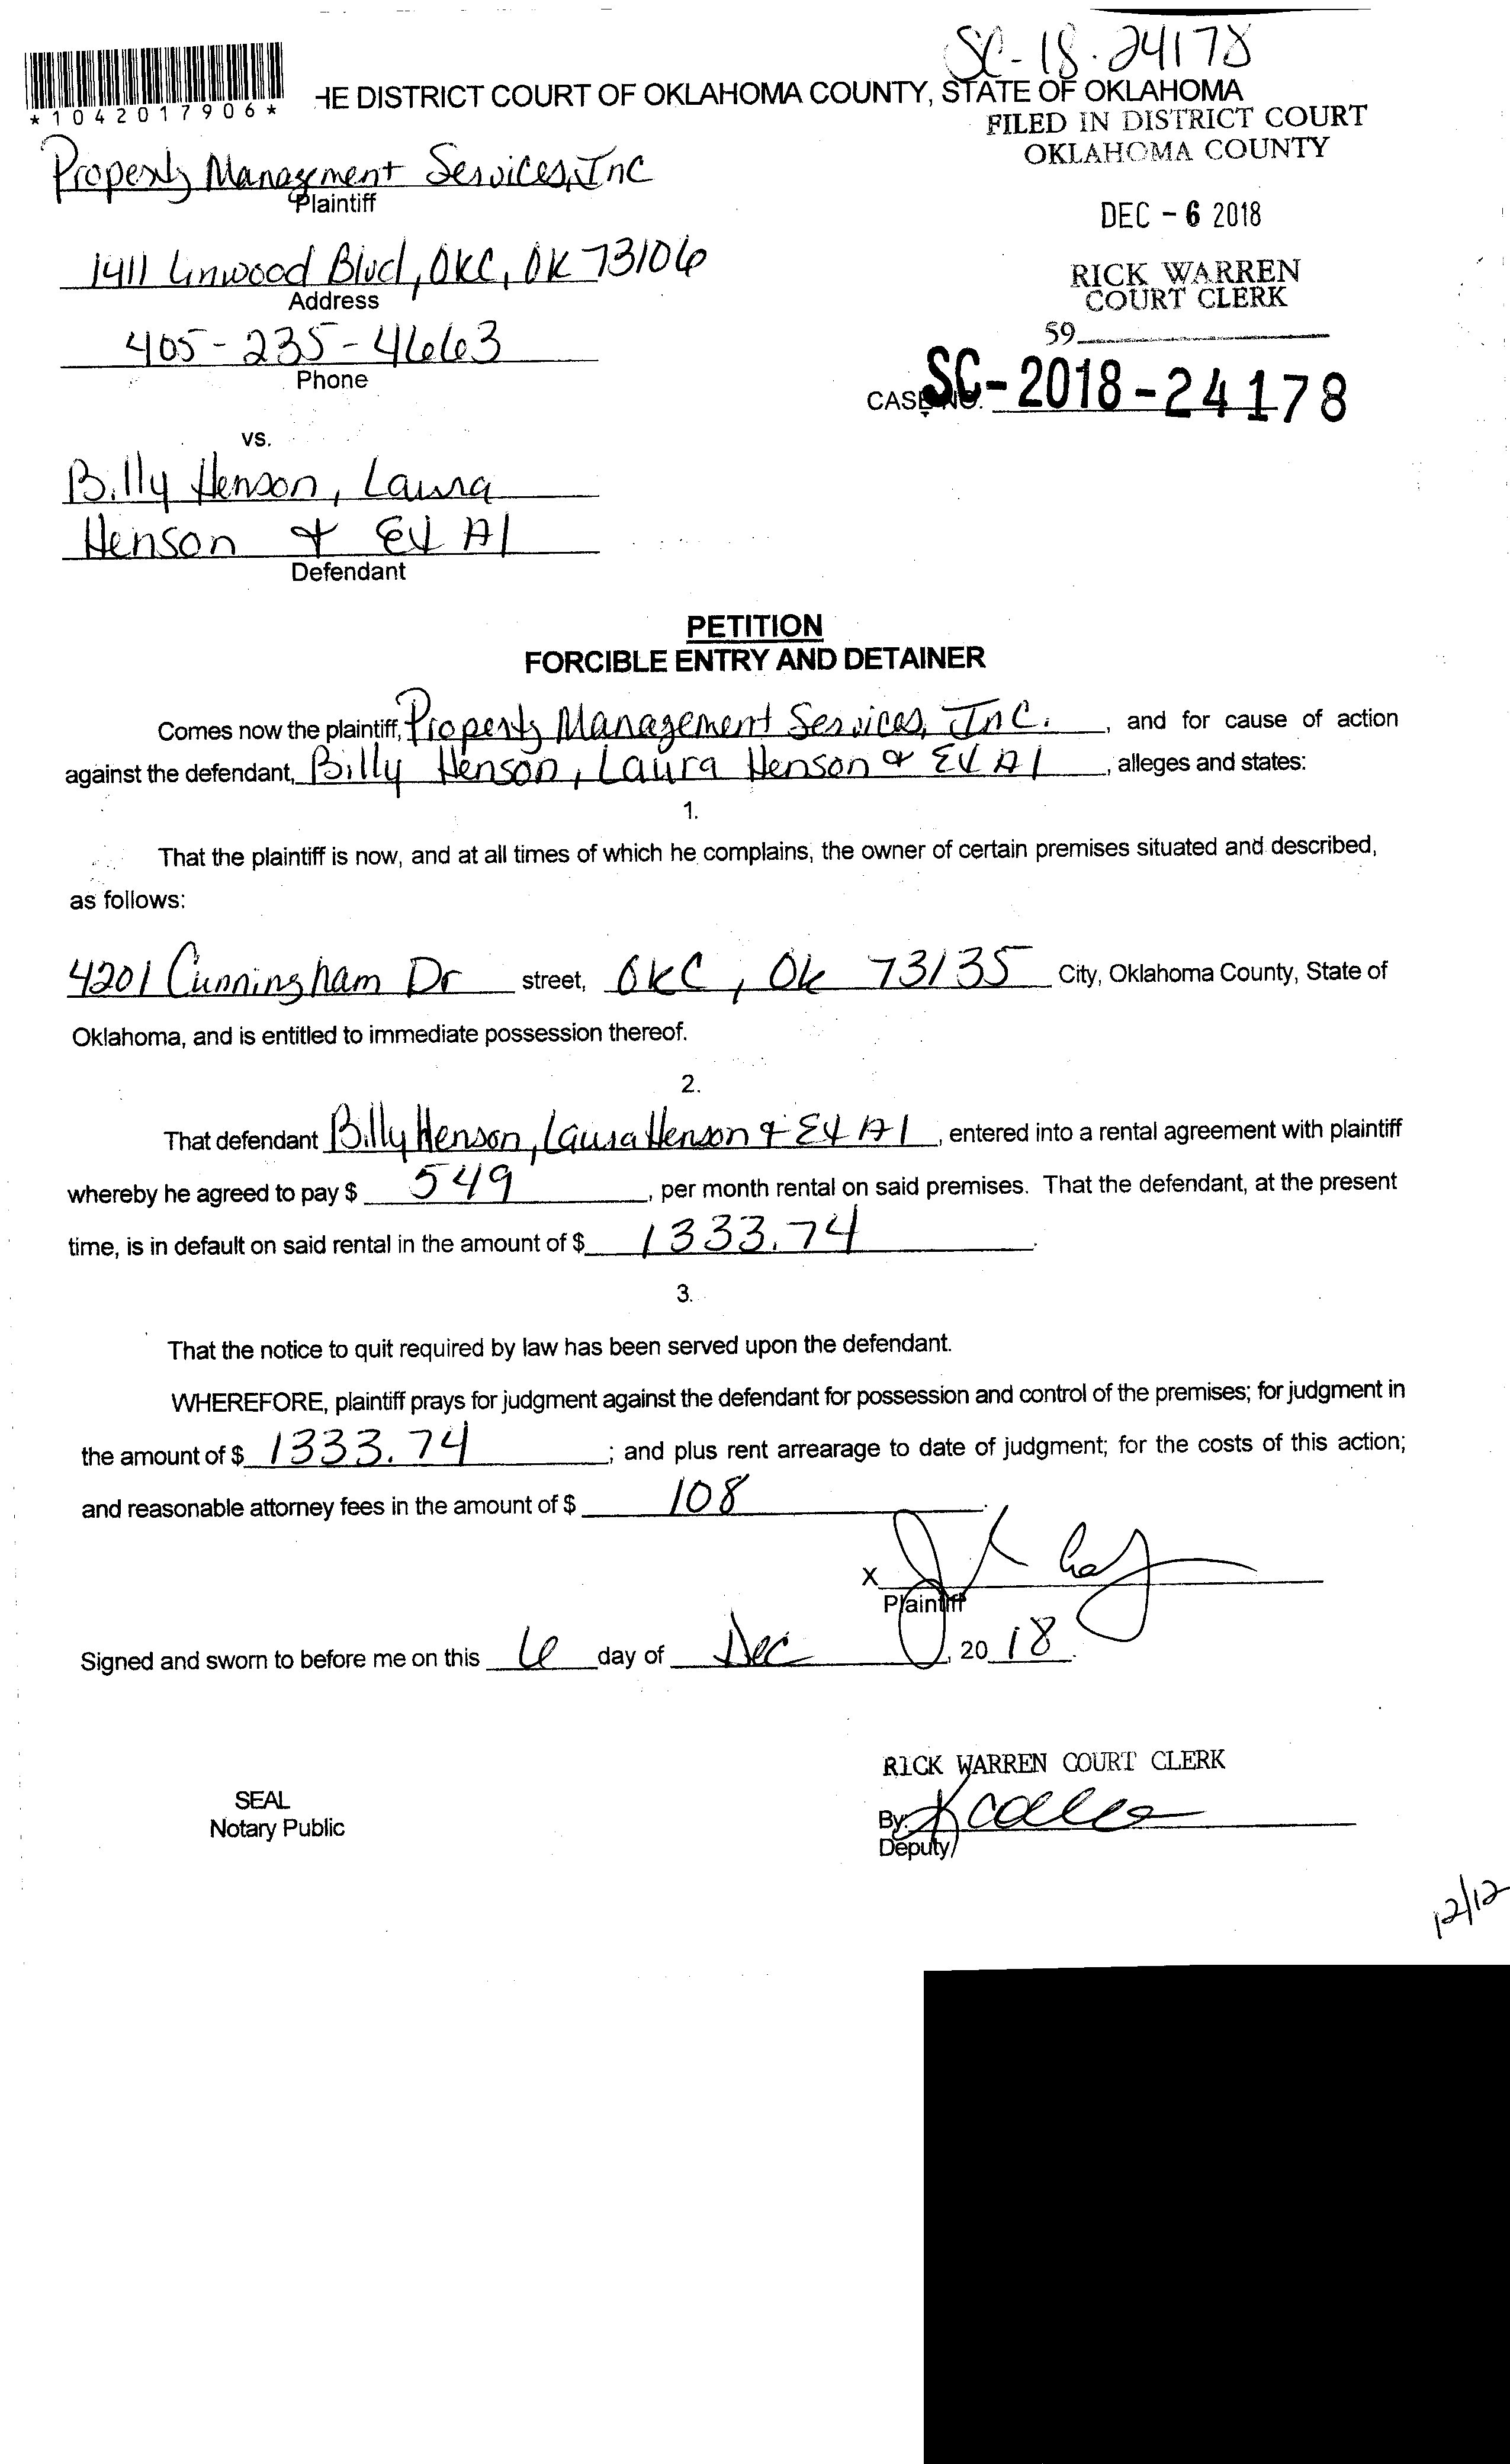 SC-18-24178
*1042017906*
HE DISTRICT COURT OF OKLAHOMA COUNTY, STATE OF OKLAHOMA
FILED IN DISTRICT COURT
OKLAHOMA COUNTY
Property Management Services, Inc
Plaintiff
DEC - 6 2018
1411 Linwood Blvd, OKC, OK 73106
Address
RICK WARREN
COURT CLERK
405-235-4663
Phone
59
CASE NO. SC-2018-24178
vs.
Billy Henson, Laura
Henson & Et Al
Defendant
PETITION
FORCIBLE ENTRY AND DETAINER
Comes now the plaintiff, Property Management Services, Inc., and for cause of action
against the defendant, Billy Henson, Laura Henson & Et Al, alleges and states:
1.
That the plaintiff is now, and at all times of which he complains, the owner of certain premises situated and described,
as follows:
4201 Cunningham Dr street, OKC, Ok 73135 City, Oklahoma County, State of
Oklahoma, and is entitled to immediate possession thereof.
2.
That defendant Billy Henson, Laura Henson & Et Al, entered into a rental agreement with plaintiff
whereby he agreed to pay $ 549, per month rental on said premises. That the defendant, at the present
time, is in default on said rental in the amount of $ 1333.74.
3.
That the notice to quit required by law has been served upon the defendant.
WHEREFORE, plaintiff prays for judgment against the defendant for possession and control of the premises; for judgment in
the amount of $ 1333.74; and plus rent arrearage to date of judgment; for the costs of this action;
and reasonable attorney fees in the amount of $ 108.
X
Plaintiff
Signed and sworn to before me on this 6 day of Dec, 2018.
RICK WARREN COURT CLERK
SEAL
Notary Public
By:
Deputy
12/12